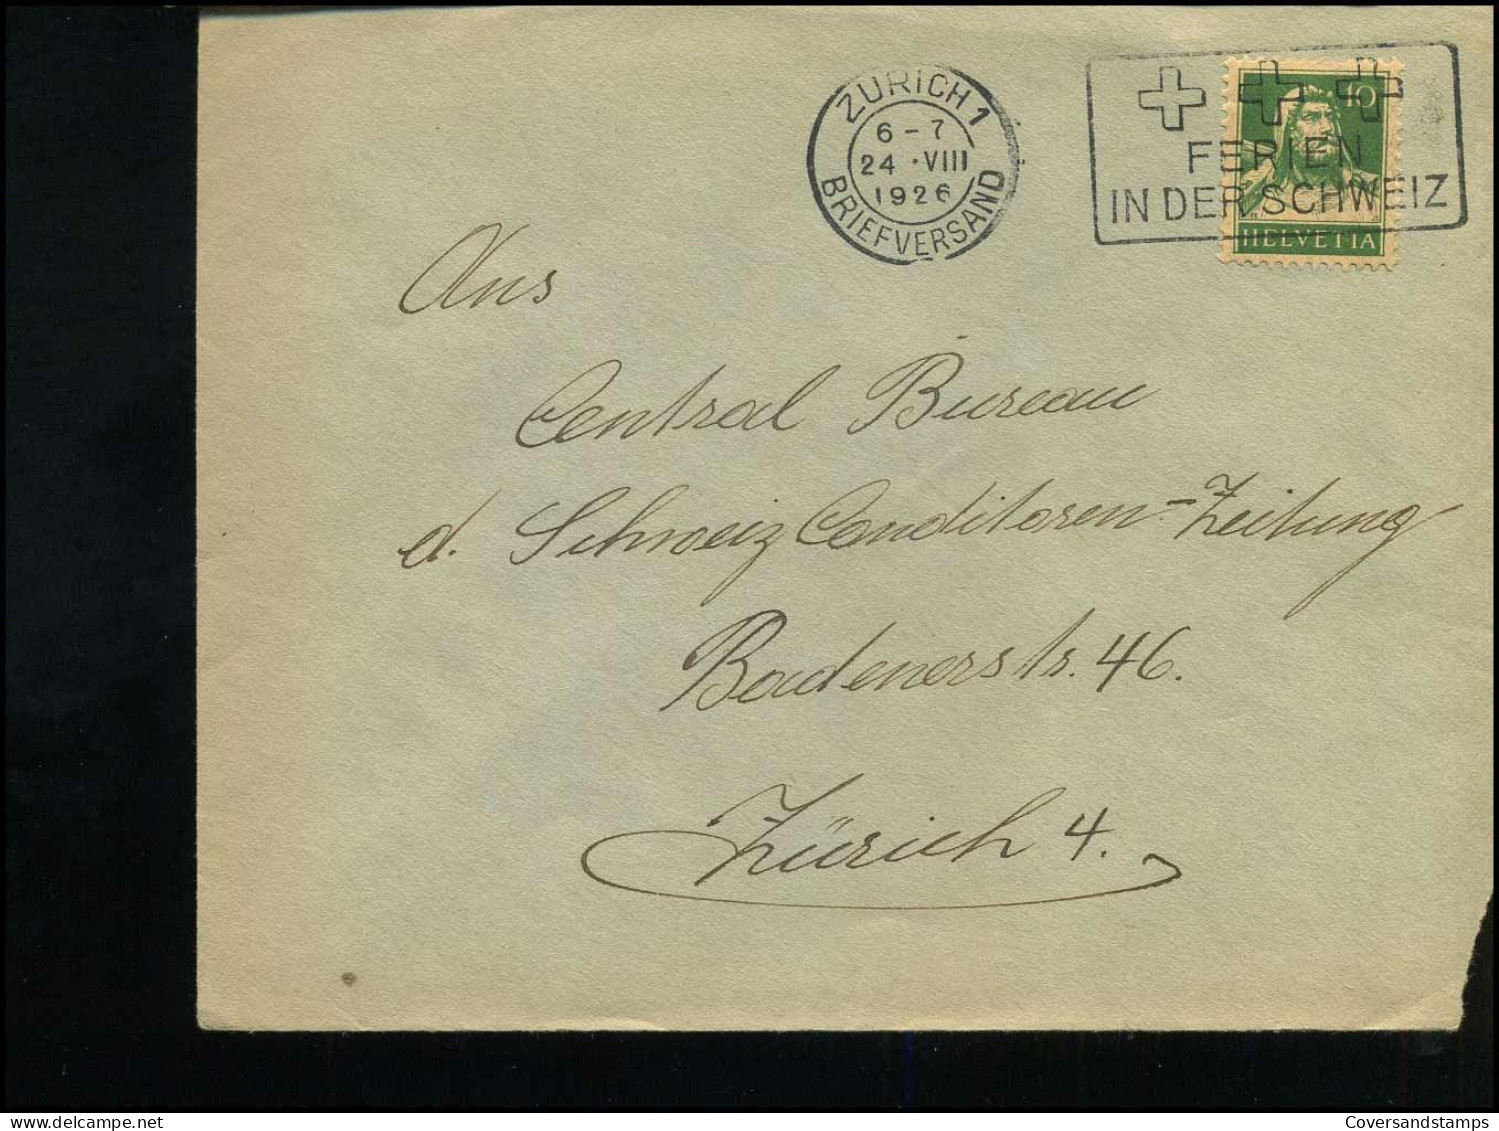 ZÜRICH 1
6-7
24·VIII
1926
BRIEFVERSAND
FERIEN
IN DER SCHWEIZ
10
HELVETIA
Ans
Central Bureau
d. Schweiz Conditoren-Zeitung
Badenerstr. 46.
Zürich 4.
CoversandStamps